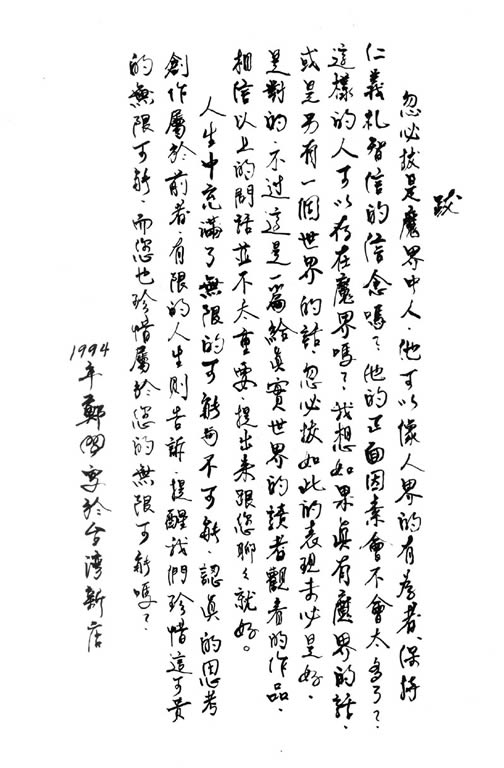 跋
忽必拔是魔界中人，他可以像人界的有為者、保持
仁義礼智信的信念嗎？他的正面因素會不會太多了？
這樣的人可以存在魔界嗎？我想如果真有魔界的話，
或是另有一個世界的話，忽必拔如此的表現未必是好，
是對的，不过這是一篇給真實世界的讀者觀看的作品，
相信以上的問話並不太重要，提出來跟您聊々就好。
人生中充滿了無限的可能与不可能，認真的思考
創作屬於前者，有限的人生則告訴，提醒我們珍惜這可貴
的無限可能，而您也珍惜屬於您的無限可能嗎？
1994年鄭問寫於台灣新店